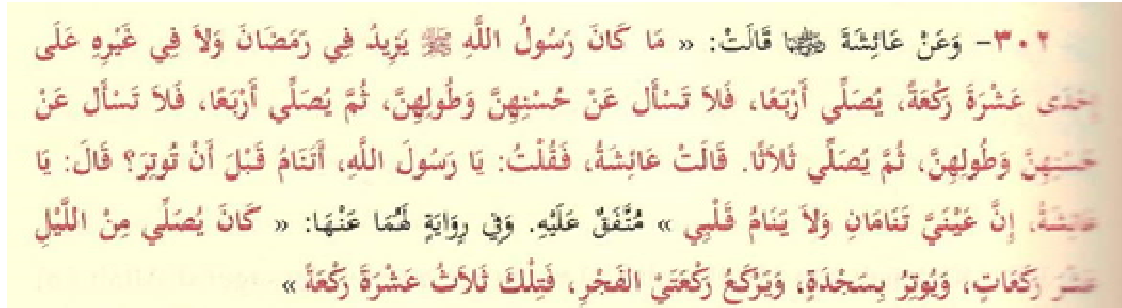 ٣٠٢- وَعَنْ عَائِشَةَ رضي الله عنها قَالَتْ: « مَا كَانَ رَسُولُ اللَّهِ ﷺ يَزِيدُ فِي رَمَضَانَ وَلاَ فِي غَيْرِهِ عَلَى
إِحْدَى عَشْرَةَ رَكْعَةً، يُصَلِّي أَرْبَعًا، فَلاَ تَسْأَل عَنْ حُسْنِهِنَّ وَطُولِهِنَّ، ثُمَّ يُصَلِّي أَرْبَعًا، فَلاَ تَسْأَل عَنْ
حُسْنِهِنَّ وَطُولِهِنَّ، ثُمَّ يُصَلِّي ثَلاَثًا. قَالَتْ عَائِشَةُ، فَقُلْتُ: يَا رَسُولَ اللَّهِ، أَتَنَامُ قَبْلَ أَنْ تُوتِرَ؟ قَالَ: يَا
عَائِشَةُ، إِنَّ عَيْنَيَّ تَنَامَانِ وَلاَ يَنَامُ قَلْبِي » مُتَّفَقٌ عَلَيْهِ. وَفِي رِوَايَةٍ لَهُمَا عَنْهَا: « كَانَ يُصَلِّي مِنْ اللَّيْلِ
عَشْرَ رَكَعَاتٍ، وَيُوتِرُ بِسَجْدَةٍ، وَيَرْكَعُ رَكْعَتَيْ الفَجْرِ، فَتِلْكَ ثَلاَثُ عَشْرَةَ رَكْعَةً »